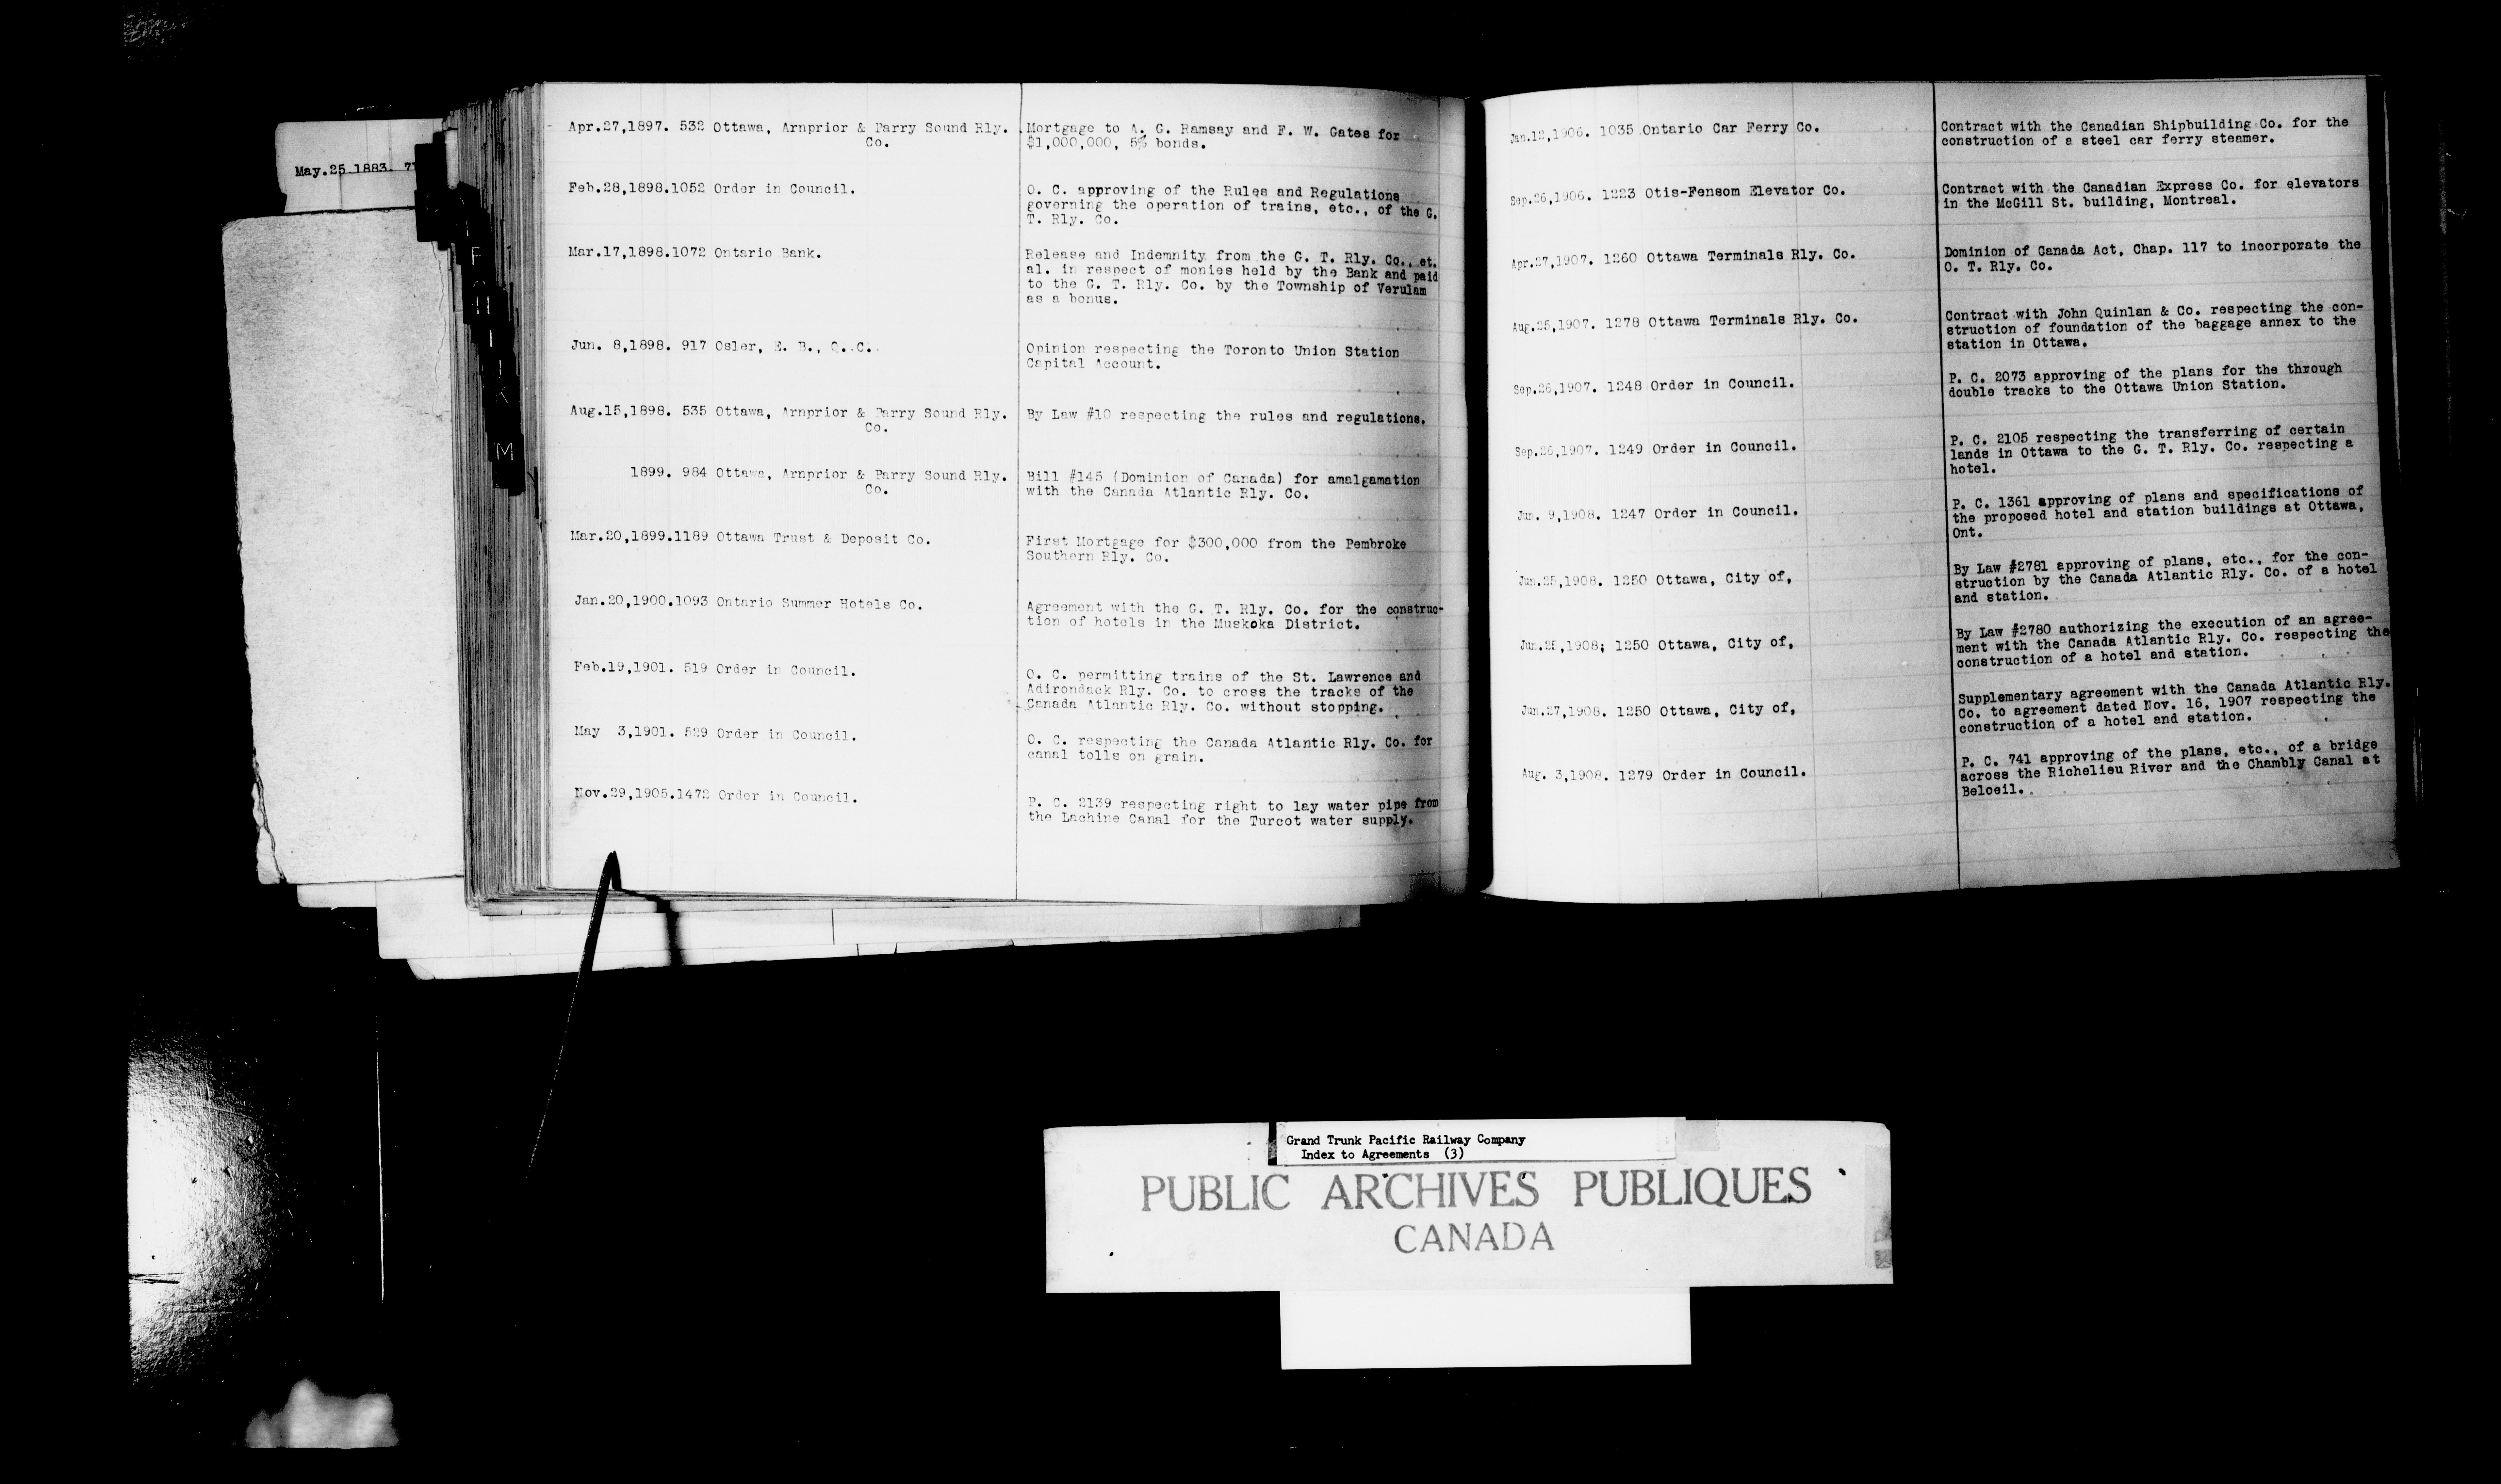 May.25.1883.
Apr.27,1897. 532 Ottawa, Arnprior & Parry Sound Rly. Co.
Mortgage to A. G. Ramsay and F. W. Gates for
$1,000,000, 5% bonds.
Feb.28,1898.1052 Order in Council.
O. C. approving of the Rules and Regulations
governing the operation of trains, etc., of the G.
T. Rly. Co.
Mar.17,1898.1072 Ontario Bank.
Release and Indemnity from the G. T. Rly. Co., et.
al. in respect of monies held by the Bank and paid
to the G. T. Rly. Co. by the Township of Verulam
as a bonus.
Jun. 8,1898. 917 Osler, E. B., Q. C.
Opinion respecting the Toronto Union Station
Capital Account.
Aug.15,1898. 535 Ottawa, Arnprior & Parry Sound Rly.
Co.
By Law #10 respecting the rules and regulations.
1899. 984 Ottawa, Arnprior & Parry Sound Rly.
Co.
Bill #145 (Dominion of Canada) for amalgamation
with the Canada Atlantic Rly. Co.
Mar.20,1899.1189 Ottawa Trust & Deposit Co.
First Mortgage for $300,000 from the Pembroke
Southern Rly. Co.
Jan.20,1900.1093 Ontario Summer Hotels Co.
Agreement with the G. T. Rly. Co. for the construc-
tion of hotels in the Muskoka District.
Feb.19,1901. 519 Order in Council.
O. C. permitting trains of the St. Lawrence and
Adirondack Rly. Co. to cross the tracks of the
Canada Atlantic Rly. Co. without stopping.
May 3,1901. 529 Order in Council.
O. C. respecting the Canada Atlantic Rly. Co. for
canal tolls on grain.
Nov.29,1905.1472 Order in Council.
P. C. 2139 respecting right to lay water pipe from
the Lachine Canal for the Turcot water supply.
Jan.12,1906. 1035 Ontario Car Ferry Co.
Contract with the Canadian Shipbuilding Co. for the
construction of a steel car ferry steamer.
Sep.26,1906. 1223 Otis-Fensom Elevator Co.
Contract with the Canadian Express Co. for elevators
in the McGill St. building, Montreal.
Apr.27,1907. 1260 Ottawa Terminals Rly. Co.
Dominion of Canada Act, Chap. 117 to incorporate the
O. T. Rly. Co.
Aug.25,1907. 1278 Ottawa Terminals Rly. Co.
Contract with John Quinlan & Co. respecting the con-
struction of foundation of the baggage annex to the
station in Ottawa.
Sep.26,1907. 1248 Order in Council.
P. C. 2073 approving of the plans for the through
double tracks to the Ottawa Union Station.
Sep.26,1907. 1249 Order in Council.
P. C. 2105 respecting the transferring of certain
lands in Ottawa to the G. T. Rly. Co. respecting a
hotel.
Jun. 9,1908. 1247 Order in Council.
P. C. 1361 approving of plans and specifications of
the proposed hotel and station buildings at Ottawa,
Ont.
Jun.25,1908. 1250 Ottawa, City of,
By Law #2781 approving of plans, etc., for the con-
struction by the Canada Atlantic Rly. Co. of a hotel
and station.
Jun.25,1908; 1250 Ottawa, City of,
By Law #2780 authorizing the execution of an agree-
ment with the Canada Atlantic Rly. Co. respecting the
construction of a hotel and station.
Jun.27,1908. 1250 Ottawa, City of,
Supplementary agreement with the Canada Atlantic Rly.
Co. to agreement dated Nov. 16, 1907 respecting the
construction of a hotel and station.
Aug. 3,1908. 1279 Order in Council.
P. C. 741 approving of the plans, etc., of a bridge
across the Richelieu River and the Chambly Canal at
Beloeil.
Grand Trunk Pacific Railway Company
Index to Agreements (3)
PUBLIC ARCHIVES PUBLIQUES
CANADA